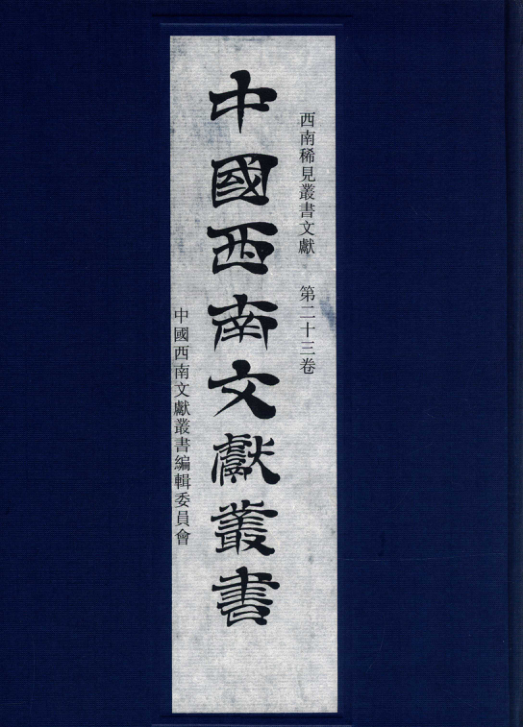 西南稀見叢書文獻　第二十三卷
中國西南文獻叢書
中國西南文獻叢書編輯委員會